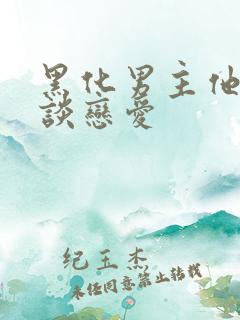 黑化男主他
談戀愛
纪玉杰
未经同意禁止转载